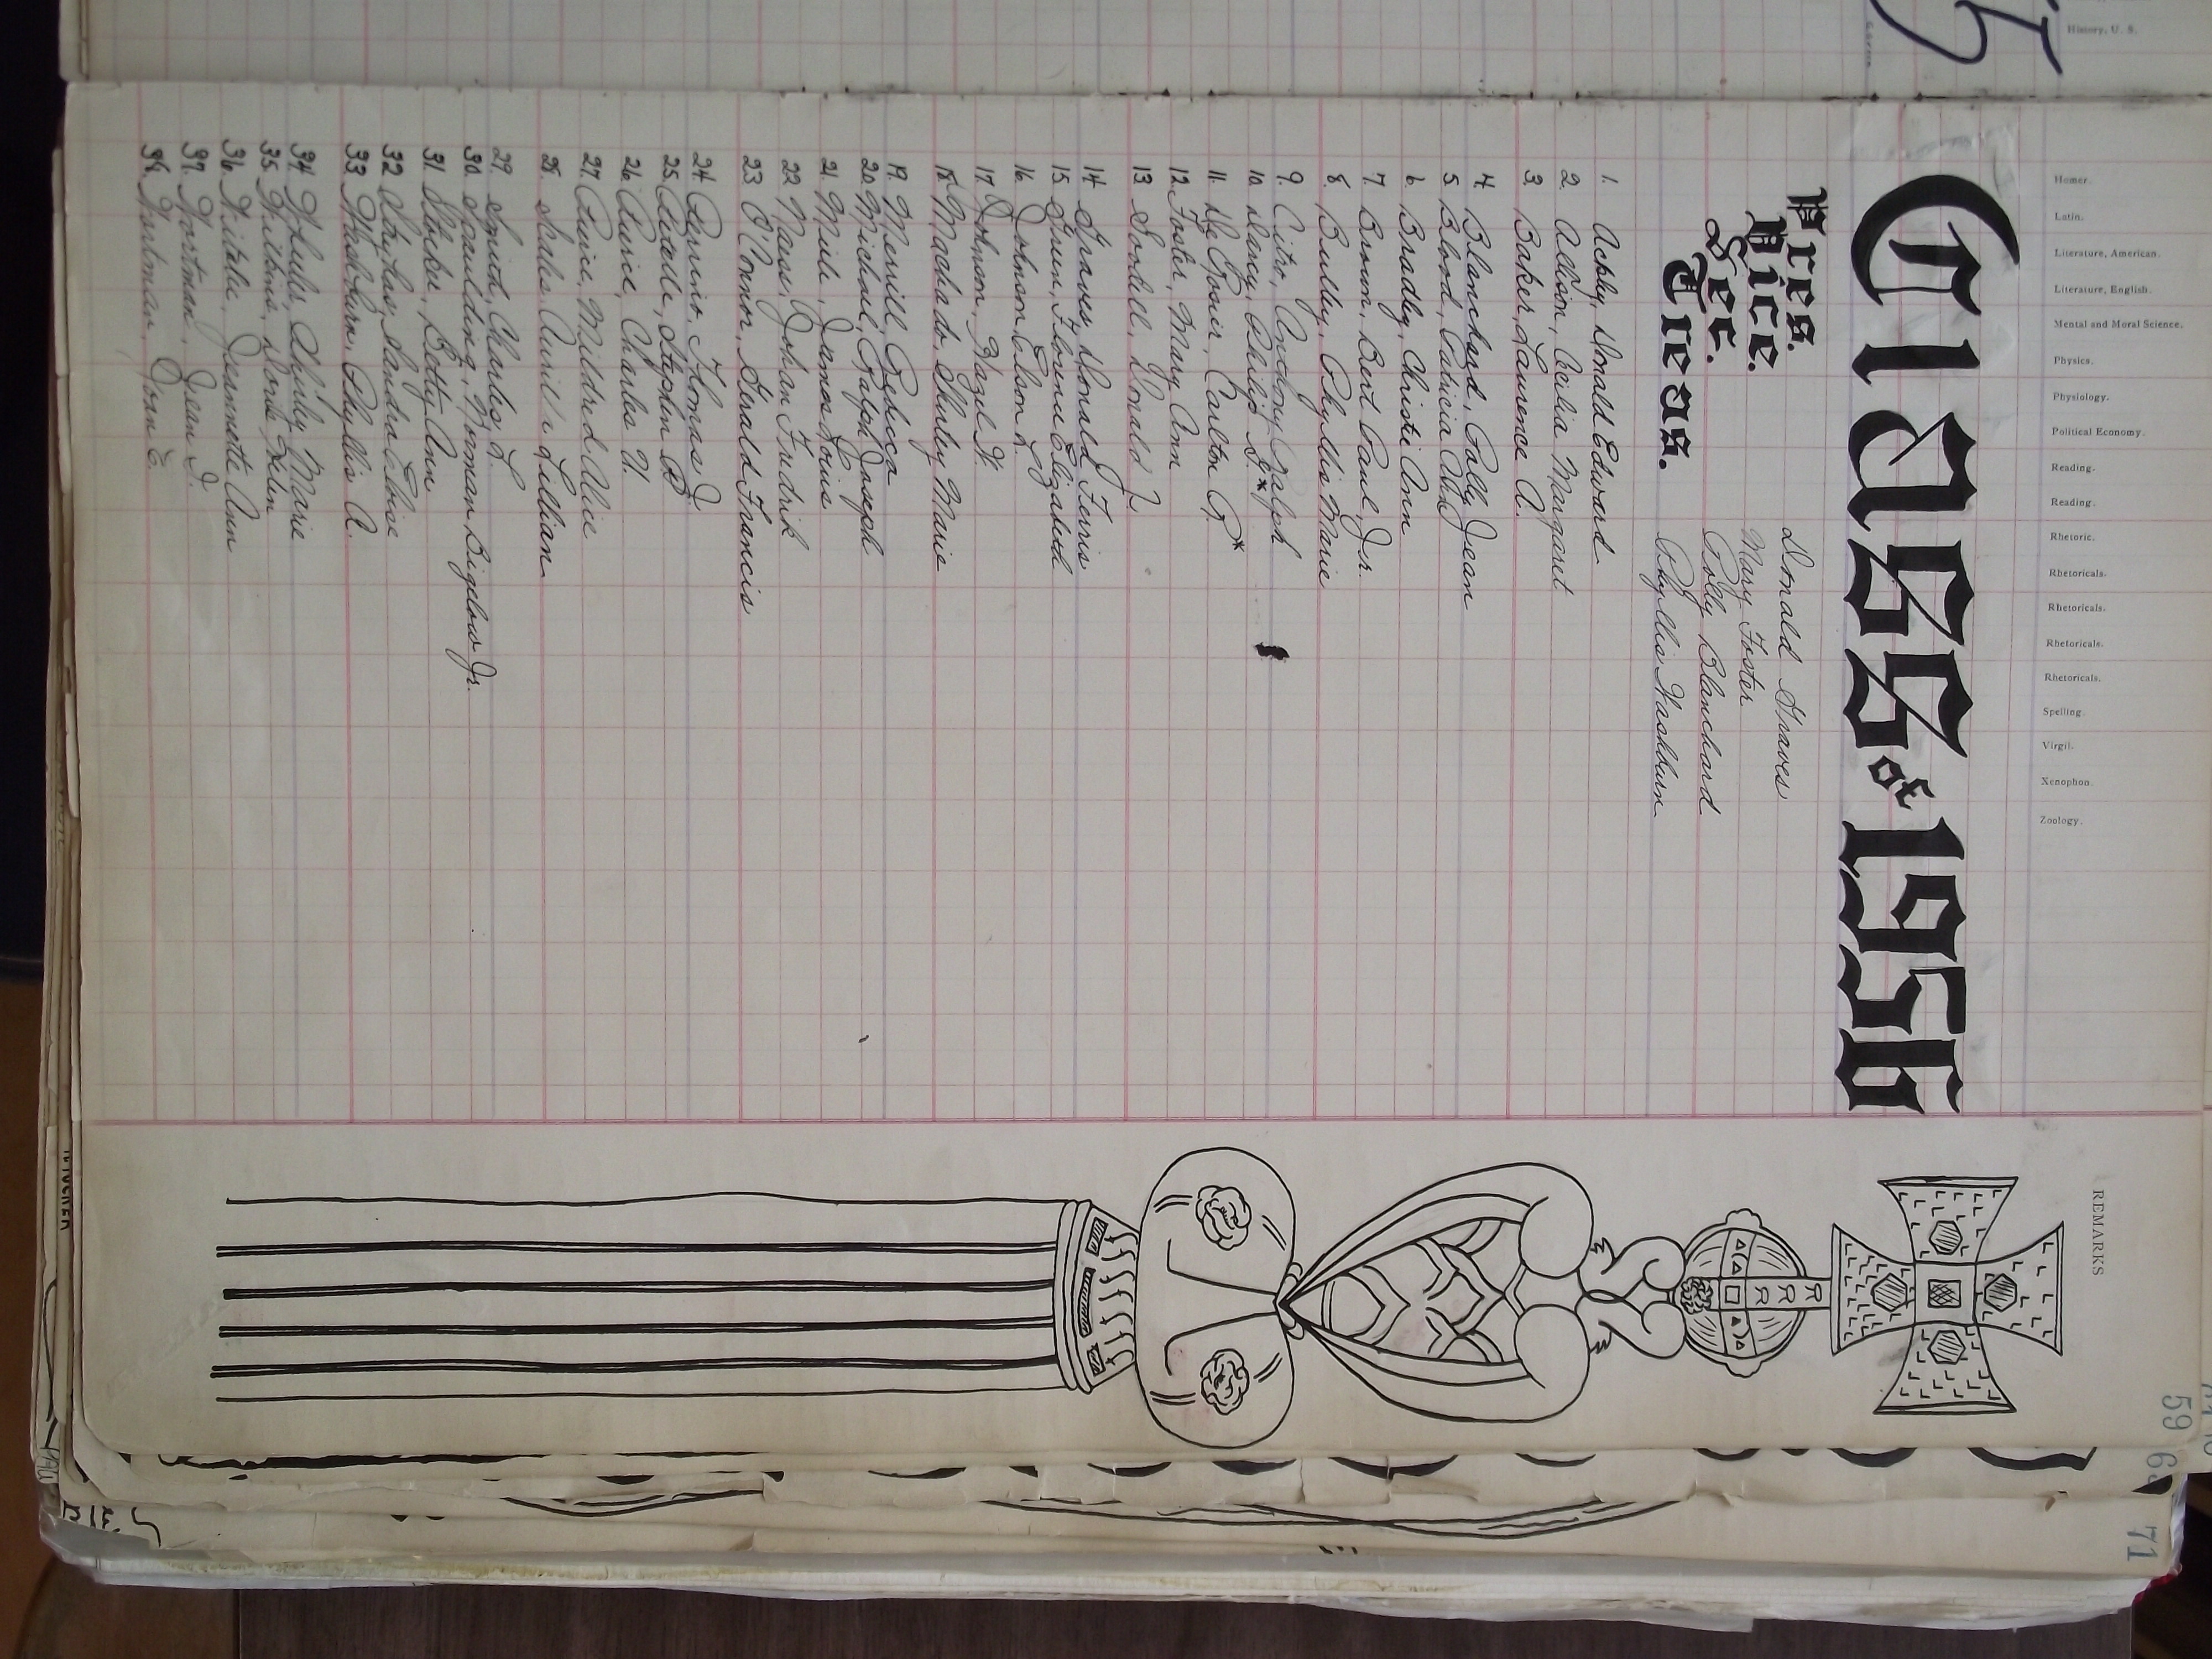 History, U. S.
Homer.
Latin.
Literature, American.
Literature, English.
Mental and Moral Science.
Physics.
Physiology.
Political Economy.
Reading.
Reading.
Rhetoric.
Rhetoricals.
Rhetoricals.
Rhetoricals.
Rhetoricals.
Spelling.
Virgil.
Xenophon.
Zoology.
REMARKS
59
71
Class of 1956
Pres. Donald Graves
Vice. Mary Foster
Sec. Polly Blanchard
Treas. Phyllis Washburn
1. Donald Edward
2. Allison, Cecilia Margaret
3. Baker, Laurence A.
4. Blanchard, Polly Jean
5. Blood, Patricia Ann
6. Bradley, Christi Ann
7. Brown, Bert Paul, Jr.
8. Bulley, Phyllis Marie
9. Citro, Anthony Ralph
10. Darcy, Philip J.*
11. De Rosier, Carlton R.*
12. Foster, Mary Ann
13. Donald
14. Graves, Donald Ferris
15. Florence Elizabeth
16. Johnson, Elson L.
17. Johnson, Hazel W.
18. Machado, Shirley Marie
19. Merrill, Rebecca
20. Michael, Ralph Joseph
21. James Louis
22. Johan Fredrik
23. O'Connor, Gerald Francis
24. Perrino, Thomas J.
25. Stephen B.
26. Charles H.
27. Mildred Alice
28. Scales, Lillian
29. Smith, Charles L.
30. Spaulding, Norman Bigelow Jr.
31. Betty Ann
32. Sandra Elsie
33. Washburn, Phyllis A.
34. Shirley Marie
35. Doris Helen
36. Jeannette Ann
37. Wortman, Jean I.
38. Wortman, Joan E.